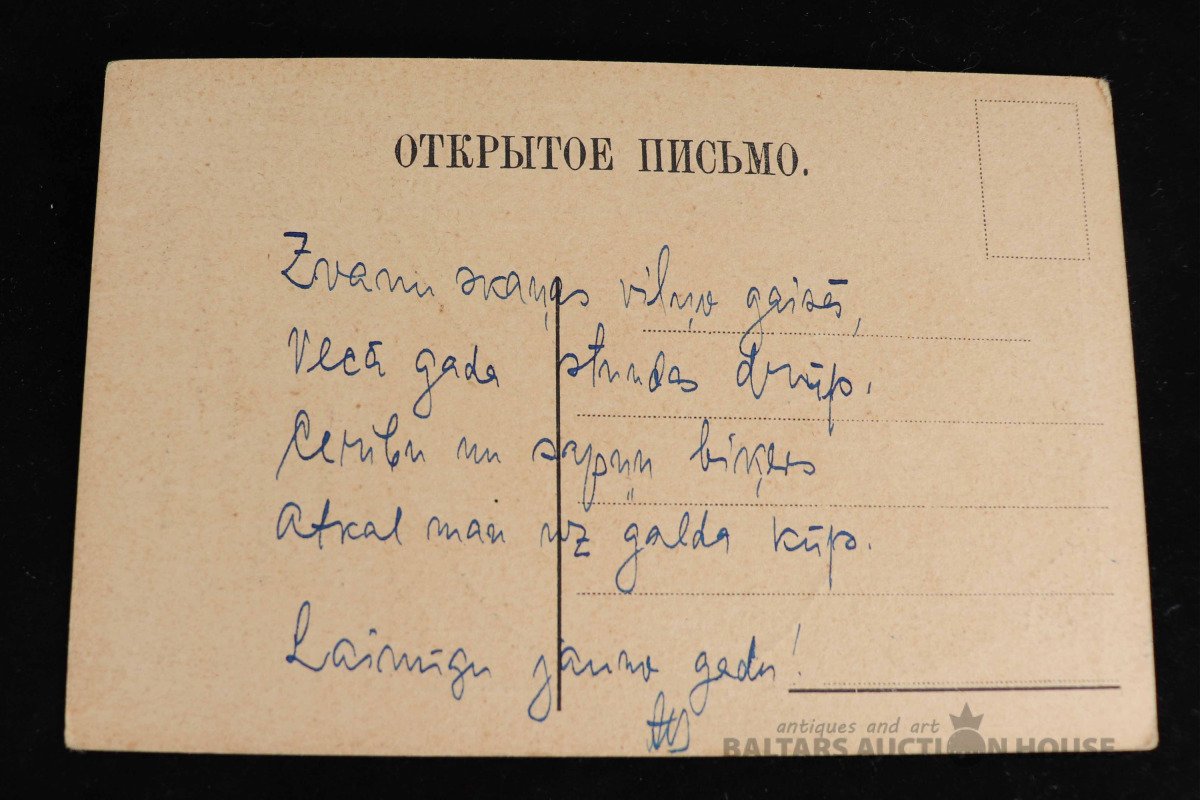 ОТКРЫТОЕ ПИСЬМО.
Zvanu skaņas viļņo gaisā,
Vecā gada stundas drūp.
Cerību un sapņu biķers
Atkal man uz galda kūp.
Laimīgu jauno gadu!
antiques and art
BALTARS AUCTION HOUSE